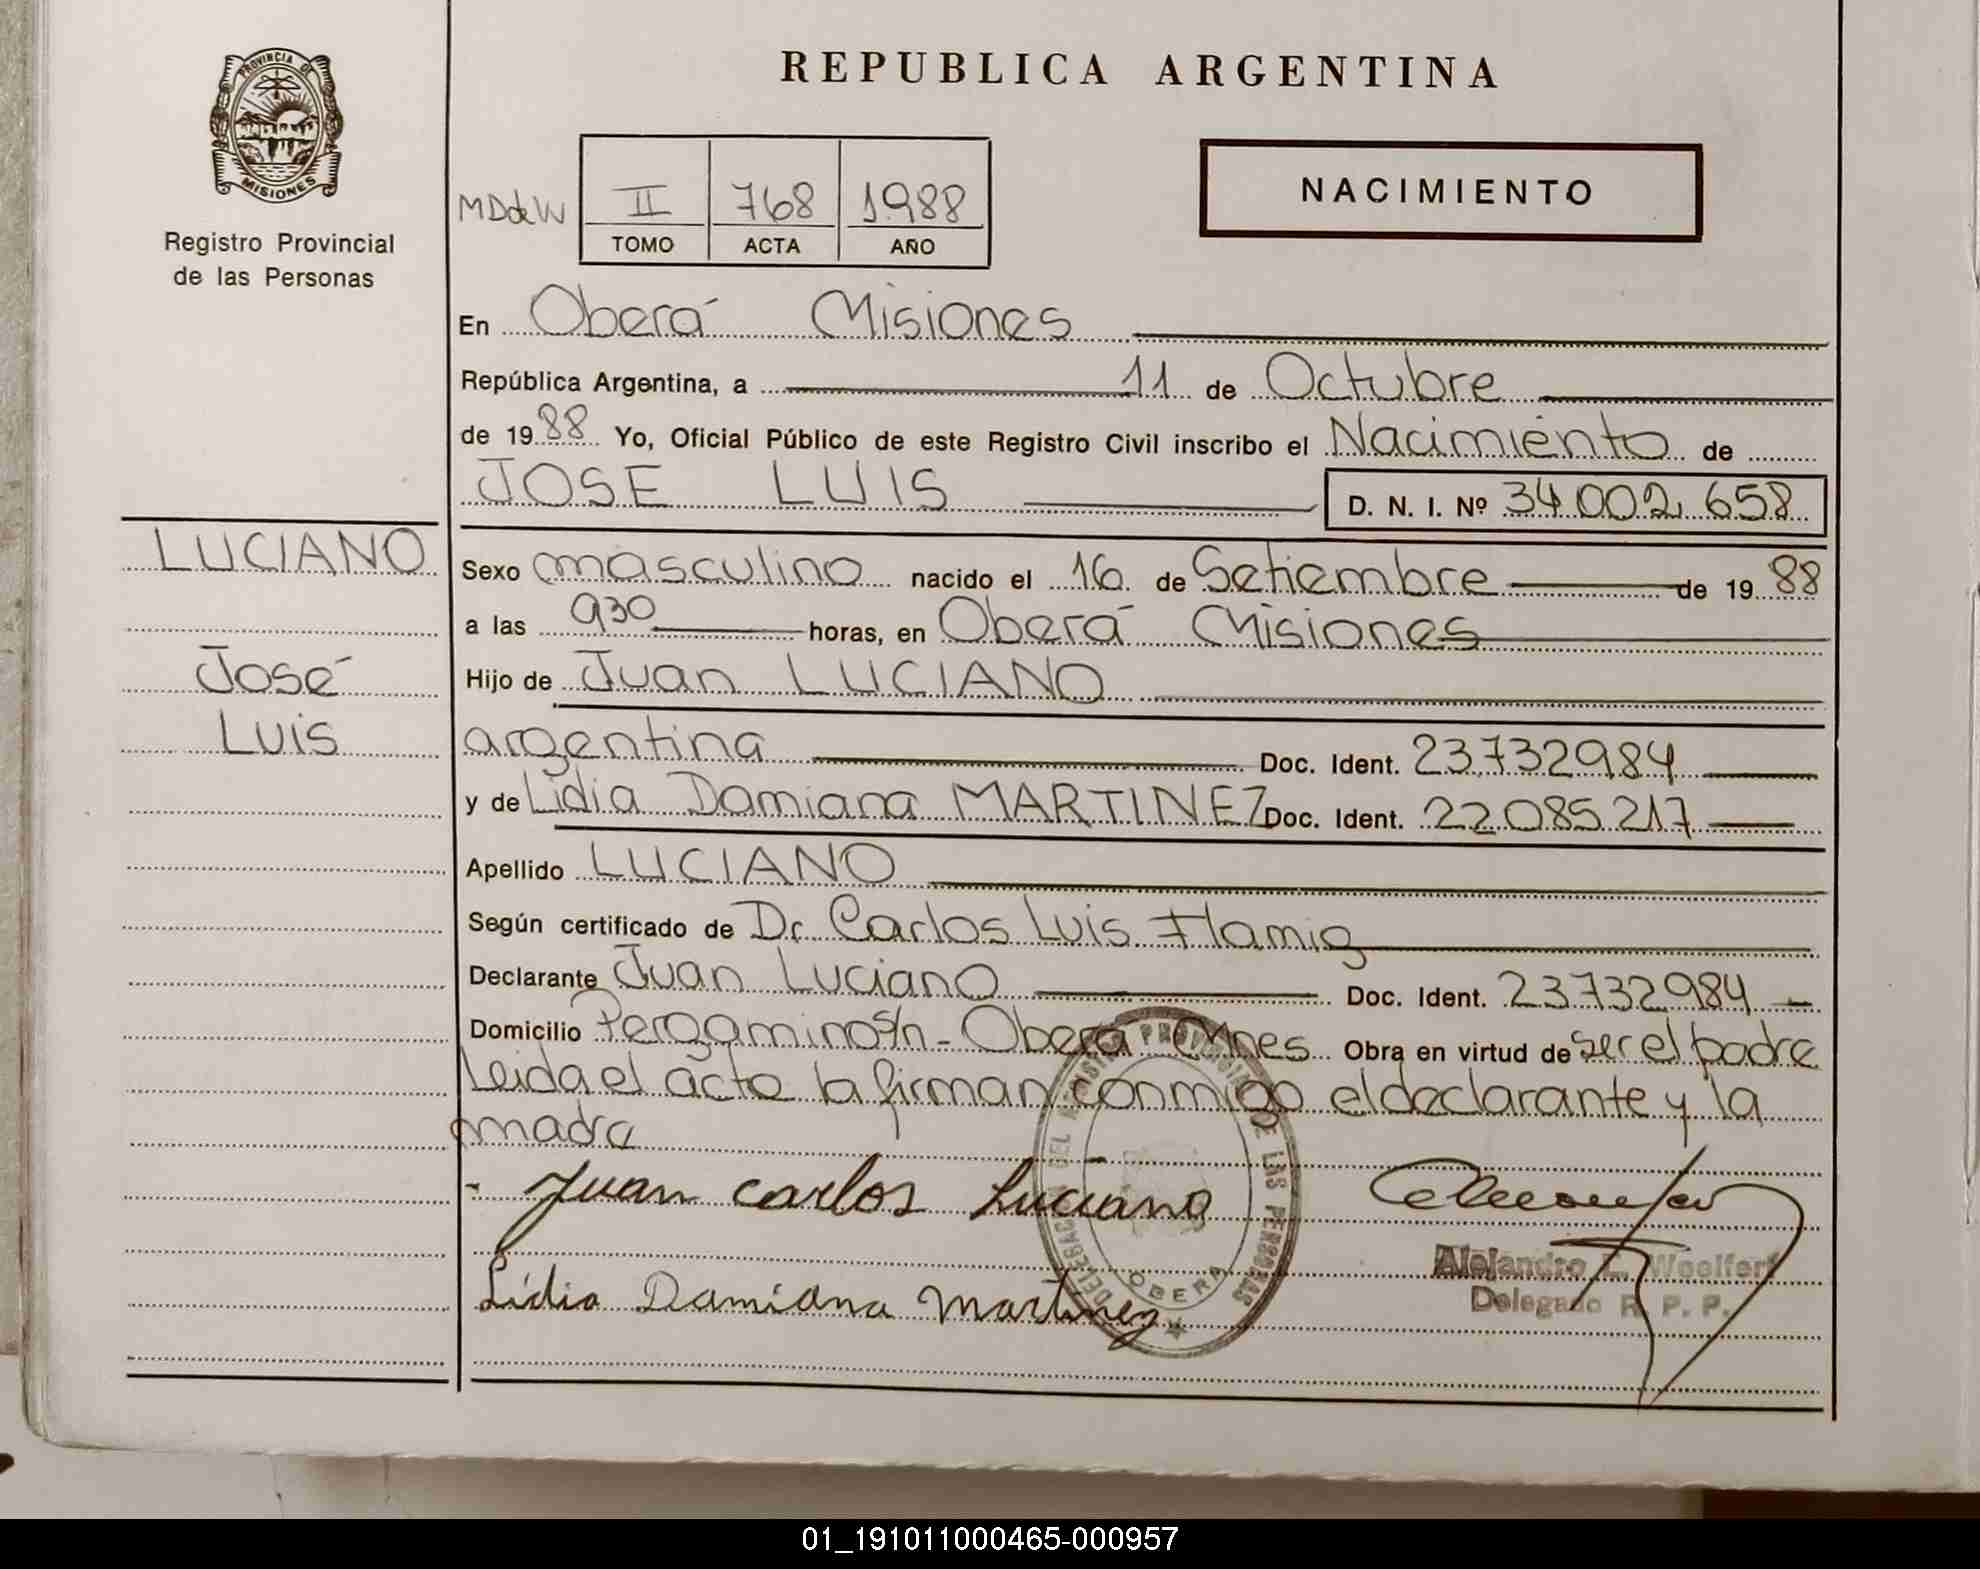 PROVINCIA DE
MISIONES
Registro Provincial
de las Personas
REPUBLICA ARGENTINA
MDdeW
II 768 1988
TOMO ACTA AÑO
NACIMIENTO
En Oberá Misiones
República Argentina, a 11 de Octubre
de 1988 Yo, Oficial Público de este Registro Civil inscribo el Nacimiento de
JOSE LUIS D. N. I. Nº 34.002.658
LUCIANO
José
Luis
Sexo masculino nacido el 16 de Setiembre de 1988
a las 930 horas, en Oberá Misiones
Hijo de Juan LUCIANO
argentina Doc. Ident. 23.732984
y de Lidia Damiana MARTINEZ Doc. Ident. 22.085.217
Apellido LUCIANO
Según certificado de Dr. Carlos Luis Flamig
Declarante Juan Luciano Doc. Ident. 23732984
Domicilio Pergamino s/n - Oberá Mnes Obra en virtud de ser el padre
Leida el acta la firman conmigo el declarante y la
madre
Juan Carlos Luciano
Lidia Damiana Martinez
DE LAS PERSONAS
OBERA
Alejandro E. Woelfert
Delegado R. P. P.
01_191011000465-000957